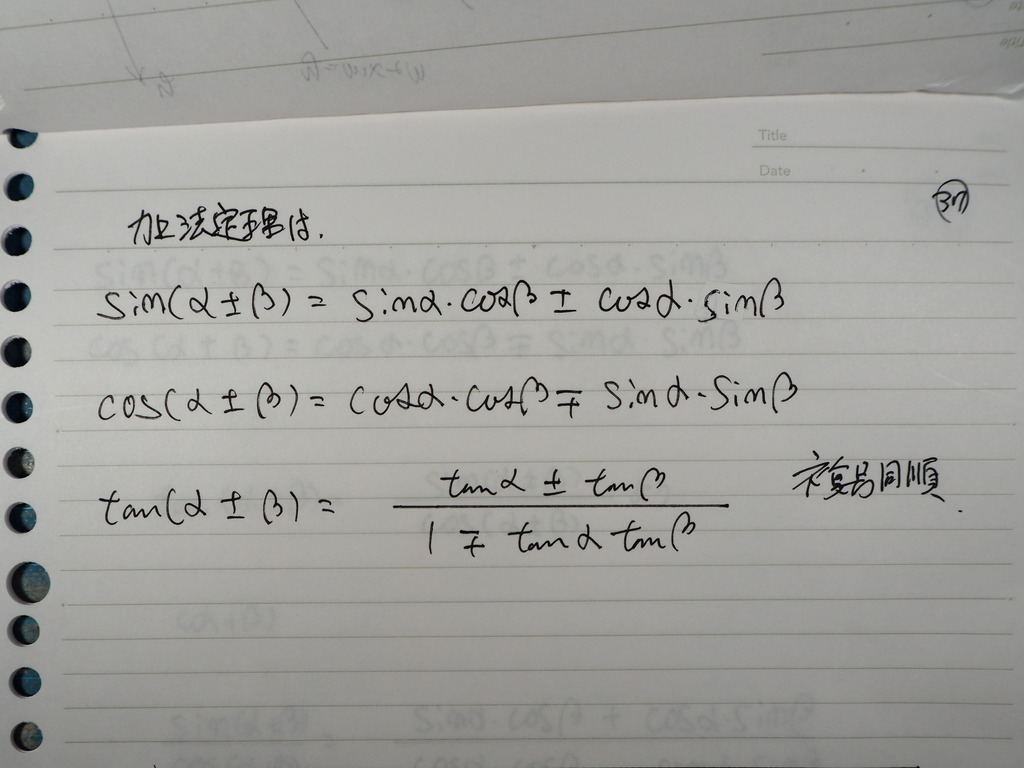 Title
Date
37
加法定理は.
sin(α±β) = sinα・cosβ ± cosα・sinβ
cos(α±β) = cosα・cosβ ∓ sinα・sinβ
tan(α±β) = (tanα ± tanβ) / (1 ∓ tanα tanβ) 複号同順.